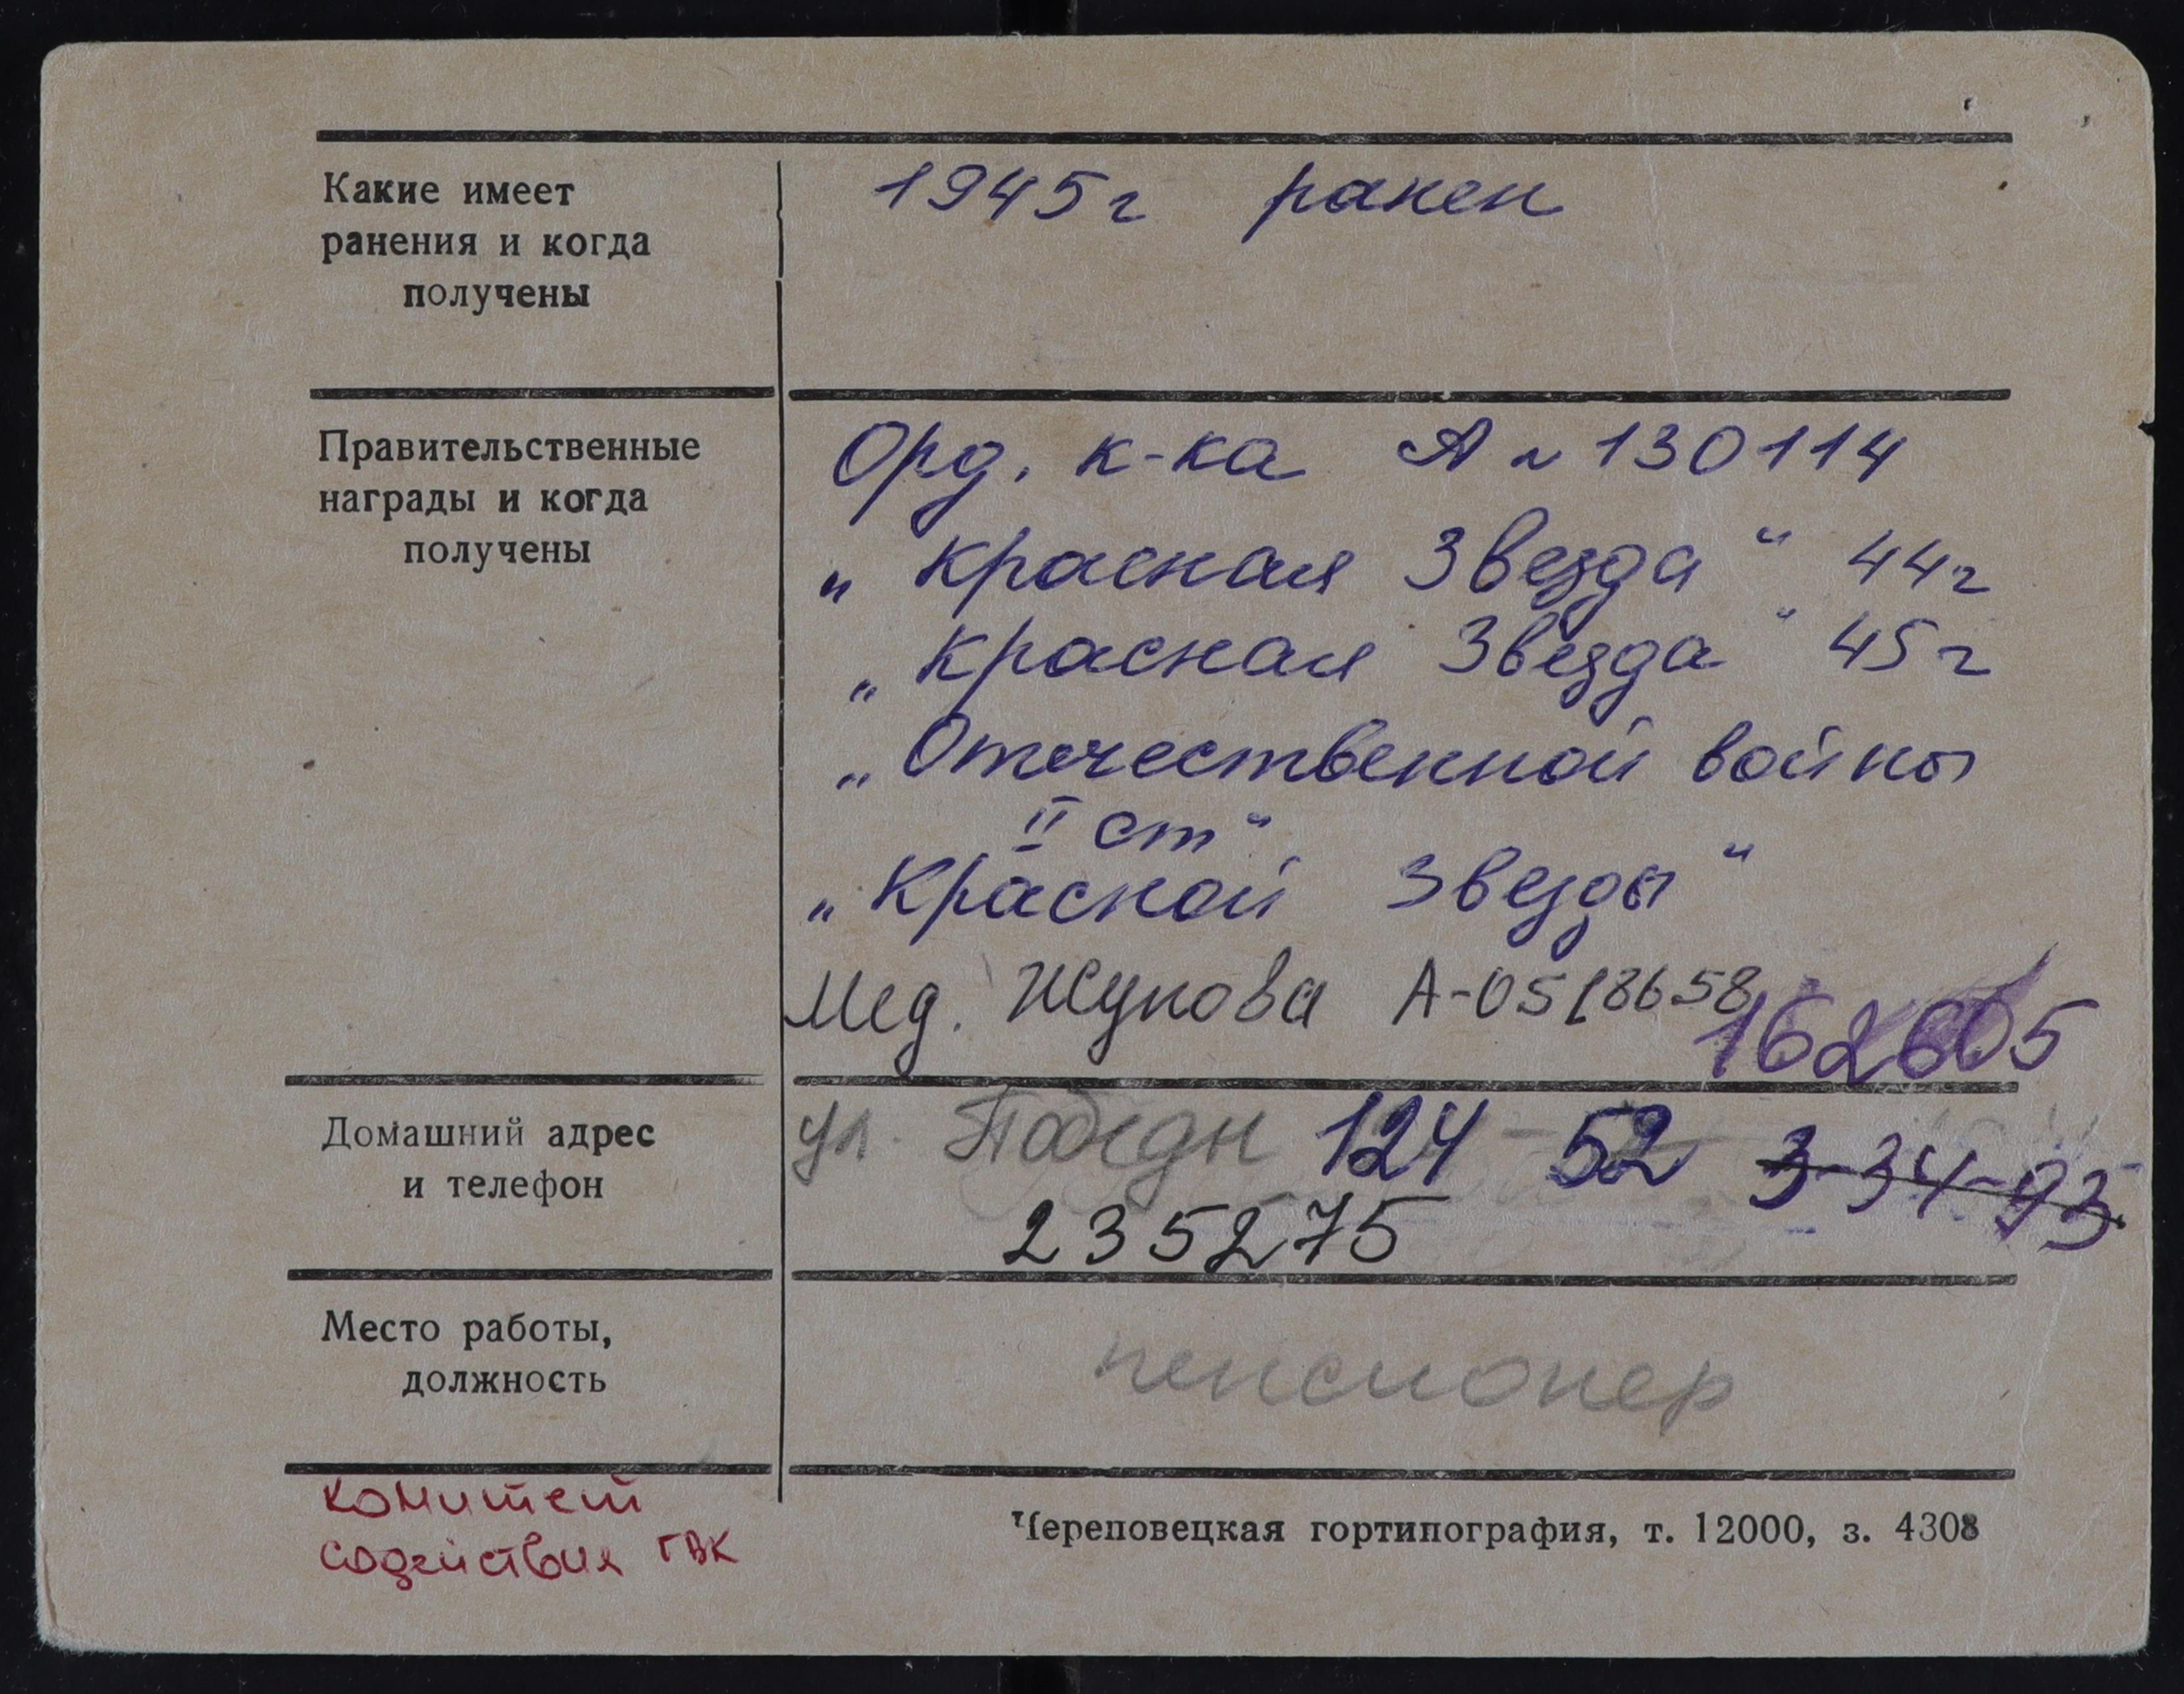 Какие имеет
ранения и когда
получены
1945г ранен
Правительственные
награды и когда
получены
Орд. к-ка А № 130114
„Красная Звезда“ 44г
„Красная Звезда“ 45г
„Отечественной войны
II ст“
„Красной Звезды“
Мед. Жукова А-0518658
162605
Домашний адрес
и телефон
ул. Победы 124-52 3-34-93
235275
Место работы,
должность
пенсионер
Комитет
содействия ГВК
Череповецкая гортипография, т. 12000, з. 4308